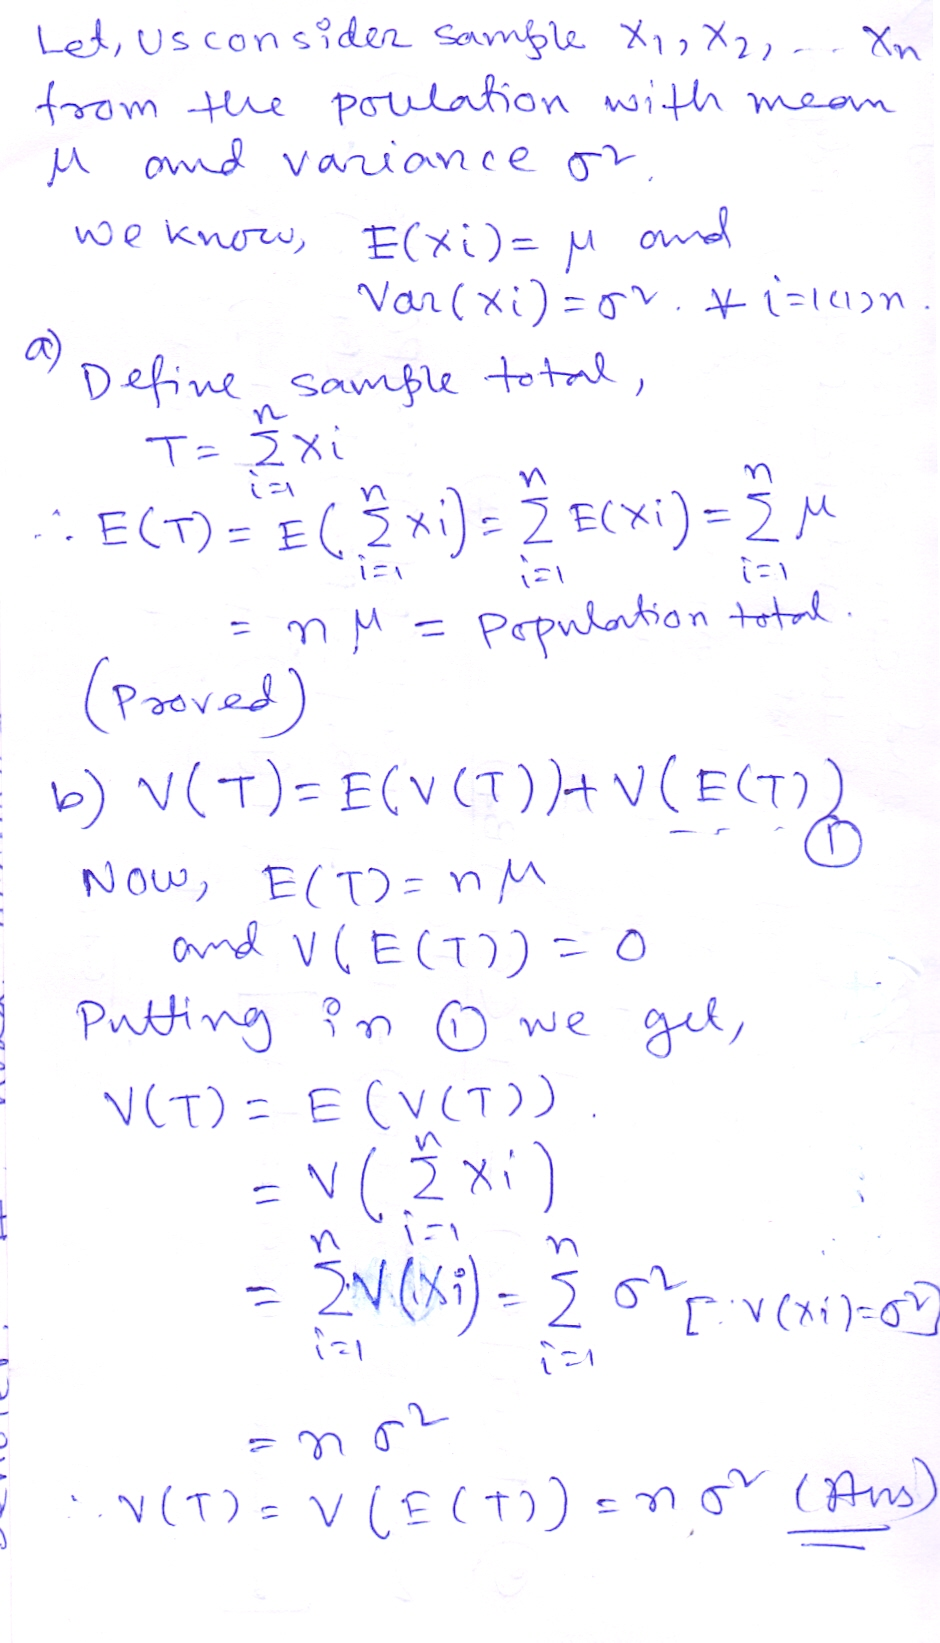 Let, us consider sample X1, X2, ... Xn
from the poulation with mean
μ and variance σ².
we know, E(xi) = μ and
Var(xi) = σ². ∀ i=1(1)n.
a)
Define sample total,
T = Σⁿᵢ₌₁ xi
∴ E(T) = E(Σⁿᵢ₌₁ xi) = Σⁿᵢ₌₁ E(xi) = Σⁿᵢ₌₁ μ
= nμ = Population total.
(Proved)
b) V(T) = E(V(T)) + V(E(T)) ①
Now, E(T) = nμ
and V(E(T)) = 0
Putting in ① we get,
V(T) = E(V(T)).
= V(Σⁿᵢ₌₁ xi)
= Σⁿᵢ₌₁ V(xi) = Σⁿᵢ₌₁ σ² [∵ V(xi) = σ²]
= nσ²
∴ V(T) = V(E(T)) = nσ² (Ans)